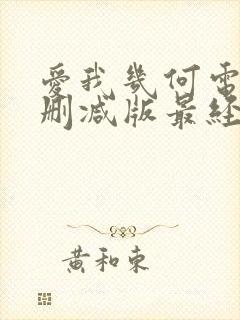 愛我幾何電
刪減版最經
黃和東